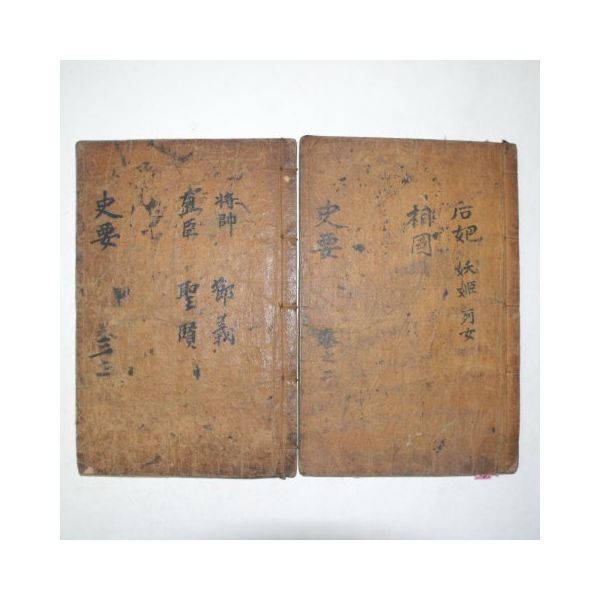 后妃 妖姬 列女
相國
史要
卷之二
將帥 節義
直臣 聖賢
史要
卷之三